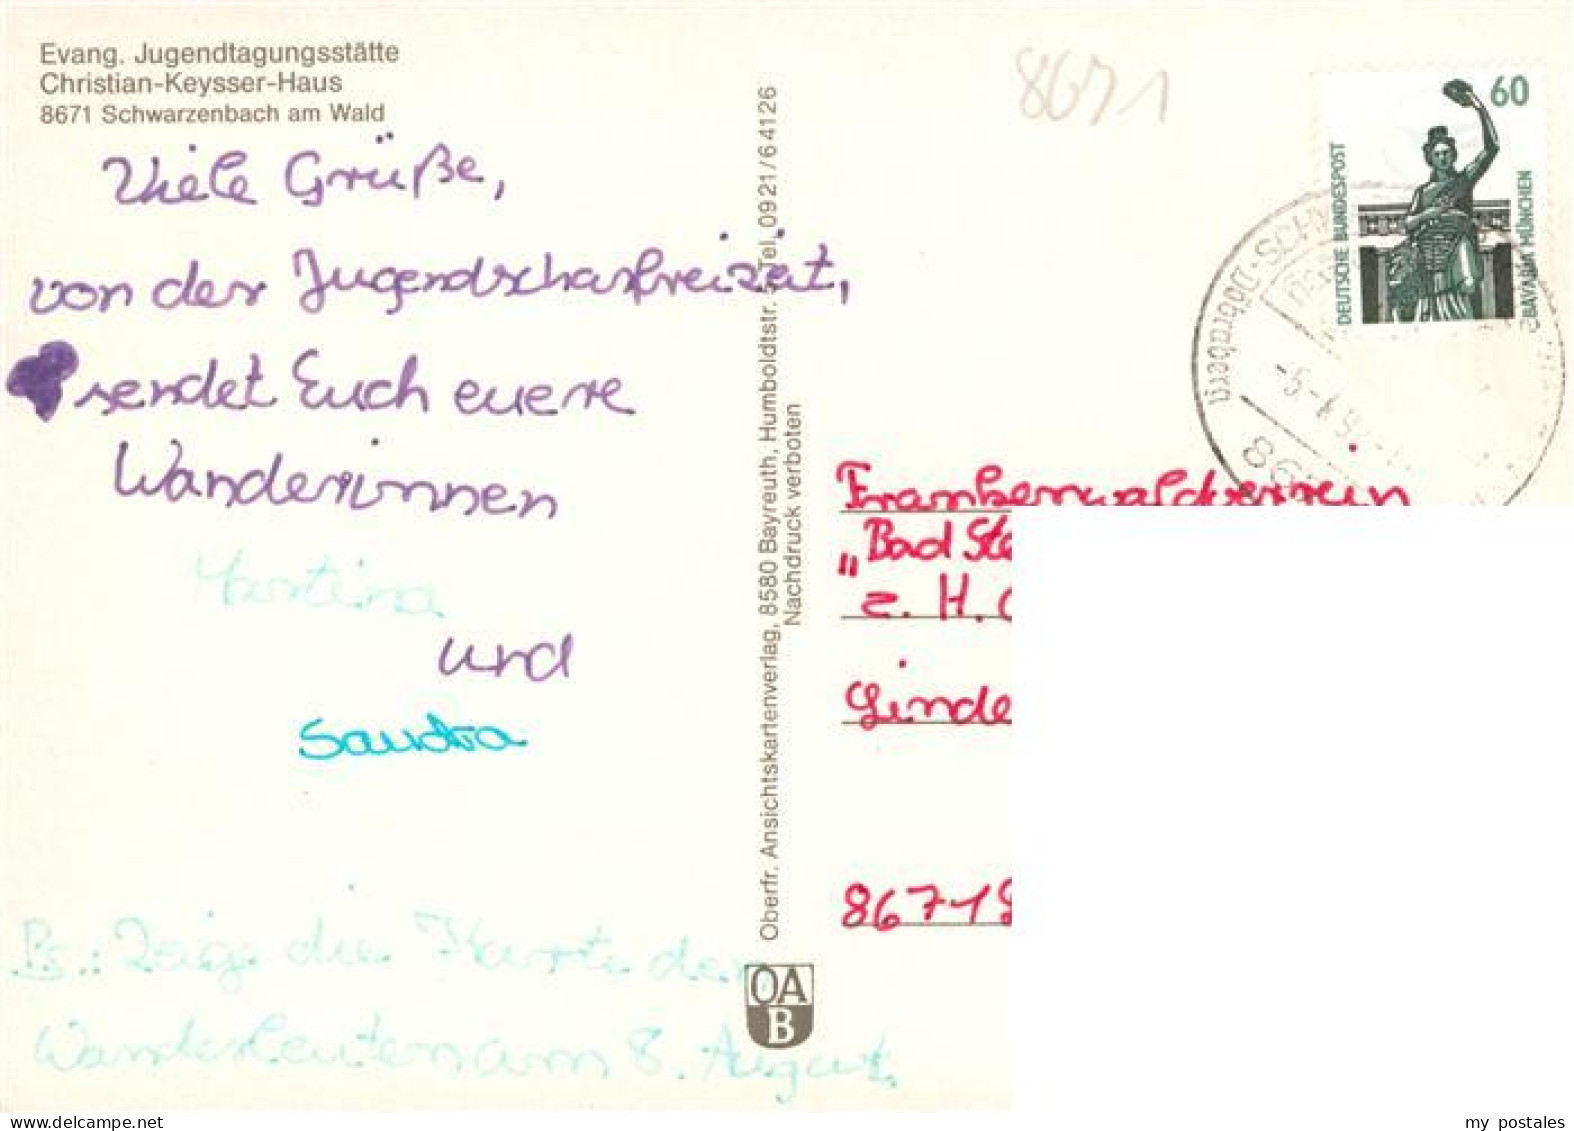 Evang. Jugendtagungsstätte
Christian-Keysser-Haus
8671 Schwarzenbach am Wald
Viele Grüße,
von der Jugendscharfreizeit,
sendet Euch euere
Wanderinnen
Martina
und
Sandra
Ps.: Zeige die Karte den
Wanderleuten am 8. August.
Oberfr. Ansichtskartenverlag, 8580 Bayreuth, Humboldtstr. 5, Tel. 0921/64126
Nachdruck verboten
OA
B
8671
60
DEUTSCHE BUNDESPOST
BAVARIA MÜNCHEN
Döbraberg
Frankenwaldverein
"Bad Ste
z. H.
Linde
8671
my postales